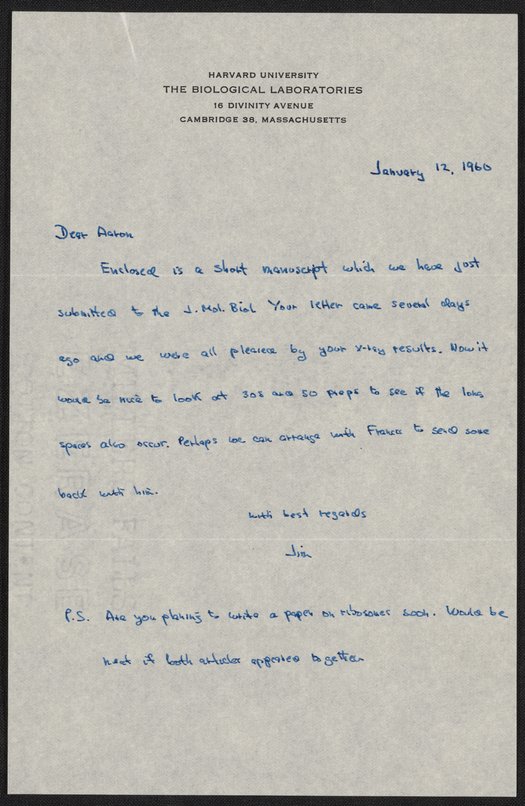 HARVARD UNIVERSITY
THE BIOLOGICAL LABORATORIES
16 DIVINITY AVENUE
CAMBRIDGE 38, MASSACHUSETTS
January 12, 1960
Dear Aaron
Enclosed is a short manuscript which we have just
submitted to the J. Mol. Biol Your letter came several days
ago and we were all pleased by your x-ray results. Now it
would be nice to look at 30s and 50 preps to see if the long
spaces also occur. Perhaps we can arrange with Francis to send some
back with him.
with best regards
Jim
P.S. Are you planing to write a paper on ribosomes soon. Would be
neat if both articles appeared together